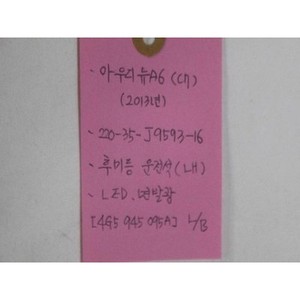 · 아우디 뉴A6 (C7)
(2013년)
· 220-35-J9593-16
· 후미등 운전석 (LH)
· LED. 면발광
[4G5 945 095A] L/B